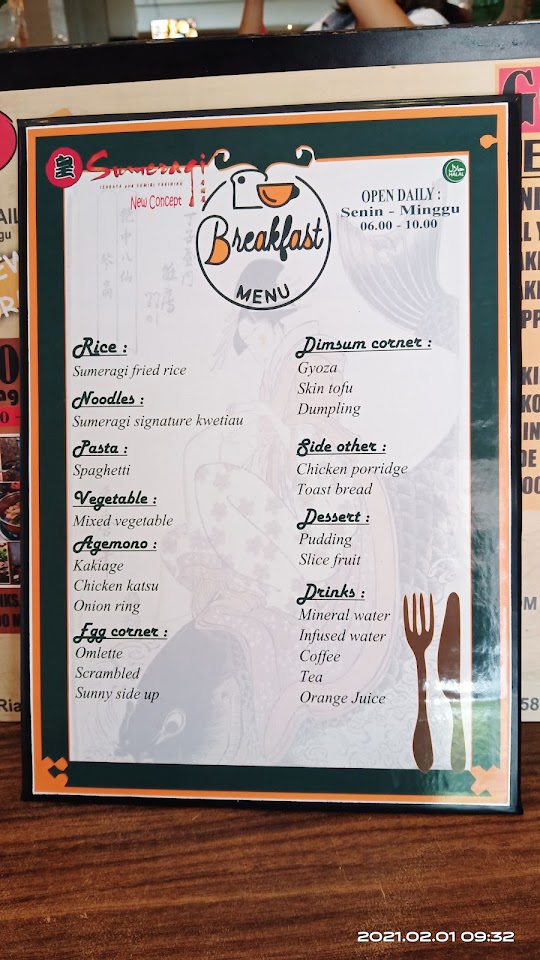 皇
Sumeragi
IZAKAYA AND SUMIBI YAKINIKU
New Concept
HALAL
OPEN DAILY :
Senin - Minggu
06.00 - 10.00
Breakfast
MENU
Rice :
Sumeragi fried rice
Noodles :
Sumeragi signature kwetiau
Pasta :
Spaghetti
Vegetable :
Mixed vegetable
Agemono :
Kakiage
Chicken katsu
Onion ring
Egg corner :
Omlette
Scrambled
Sunny side up
Dimsum corner :
Gyoza
Skin tofu
Dumpling
Side other :
Chicken porridge
Toast bread
Dessert :
Pudding
Slice fruit
Drinks :
Mineral water
Infused water
Coffee
Tea
Orange Juice
2021.02.01 09:32